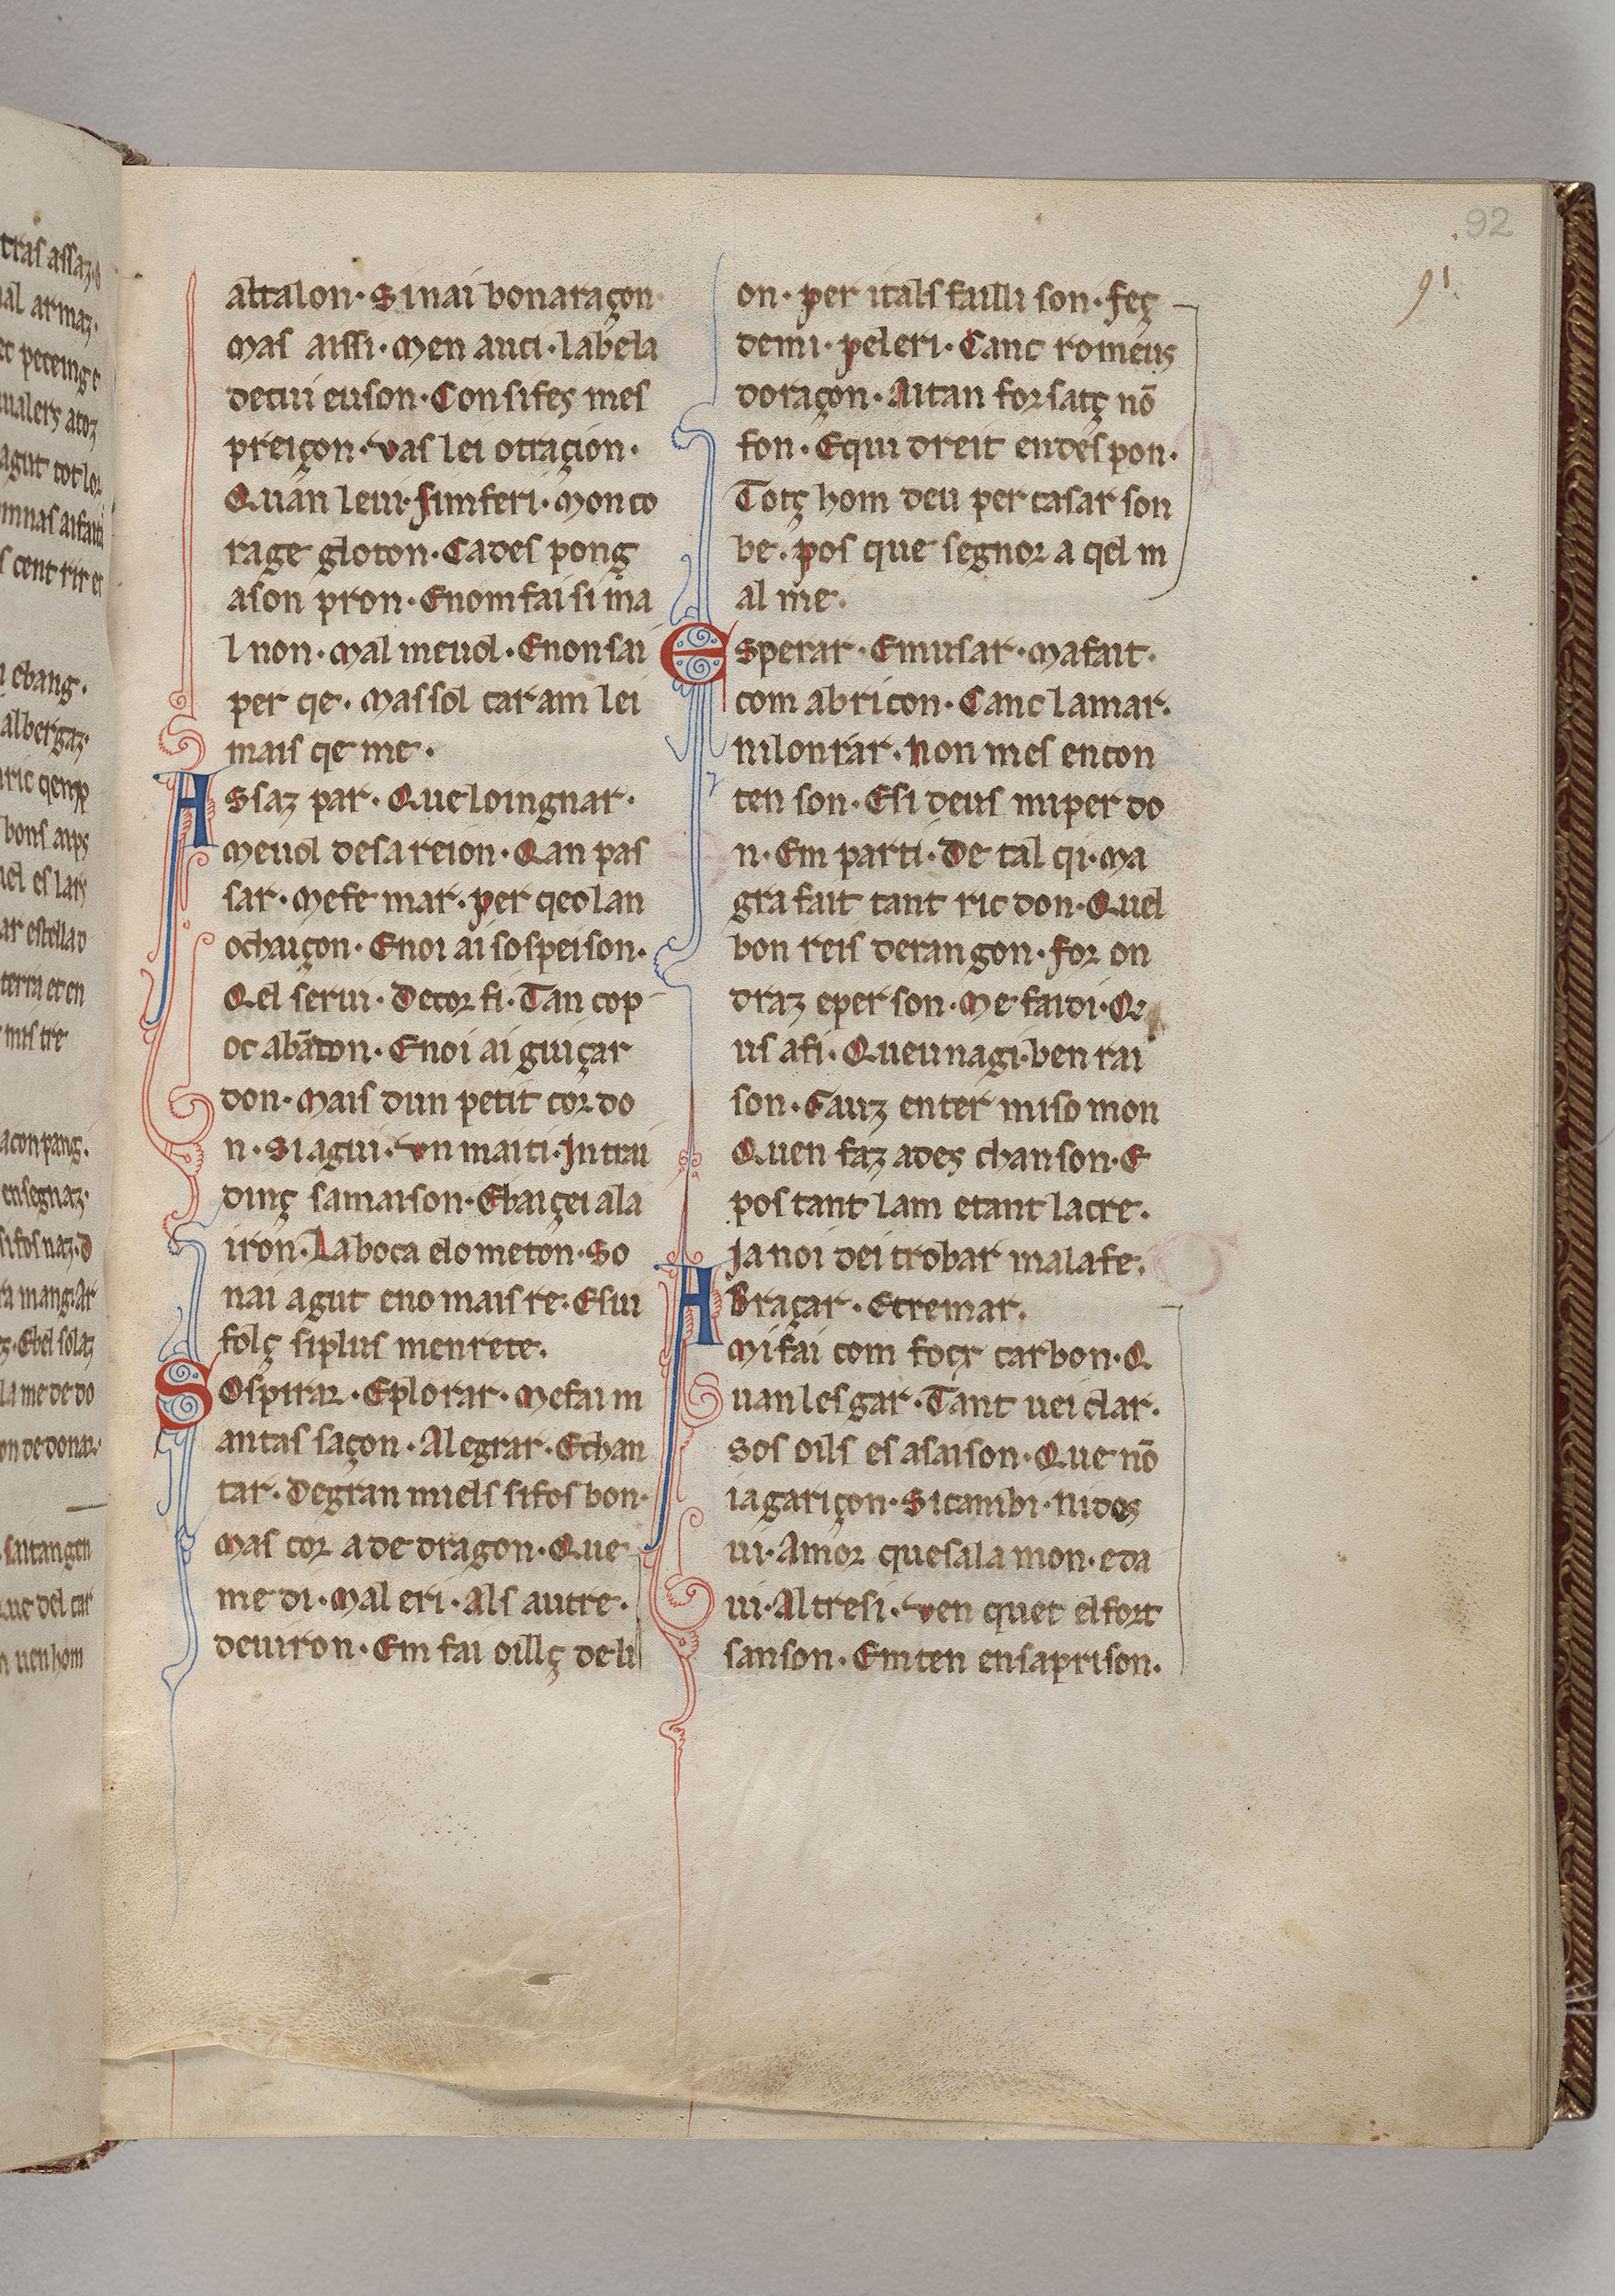 altalon· Sinai bonaraçon·
Mas aissi· Men auci· labela
decui euson· Consifes mes
preiçon· Vas lei otraçion·
Quan leui· simferi· Monco
rage gloton· Cades pong
ason pron· Enomfai si ma
l non· Mal meuol· Enonsai
per qe· Massol caram lei
mais qe me·
Assaz par· Que loingnar·
Meuol desa reion· Qan pas
sar· Mefe mar· per qeolan
ochaiçon· Enoi ai sospeison·
Qel serui· Decor fi· Tan cop
oc abãton· Enoi ai guiçar
don· Mais dun petit cordo
n· Si agui· Vn maiti· Intrai
dinç samaison· Ebaiçei ala
iron· La boca elo meton· So
nai agut eno mais re· Esiu
folç siplus menrete·
Sospirar· Eplorar· Mefai m
antas saçon· Alegrar· Echan
tar· Degran miels sifos bon·
Mas cor a de dragon· Que
me di· Mal eri· Als autre·
deuiron· Em fai oillç deli
on· per itals failli son· feç
demi· peleri· Canc romeus
doraçon· Aitan forsatç nõ
fon· Equi dreit endespon·
Totç hom deu per casar son
be· pos que segnor a qel m
al me·
Esperar· Emusar· Mafait·
com abricon· Canc lamar·
nilonrar· Non mes encon
ten son· Esi deus miperdo
n· Em parti· De tal qi· Ma
gra fait tant ric don· Quel
bon reis derangon· for on
draz eper son· Me faidi· Q
us afi· Queunagi· ben rai
son· Fauz enter miso mon
Quen faz ades chanson· E
pos tant lam etant lacre·
Ja noi dei trobar malafe·
Abraçar· Etremar·
Mi fai com focx carbon· Q
uan lesgar· Tant uei clar·
Sos oils es asaison· Que nõ
ia gariçon· Sicambi· nides
ui· Amor quesala mon· eda
ui· Altresi· Ven quet elfort
sanson· Emten ensaprison·
92
91